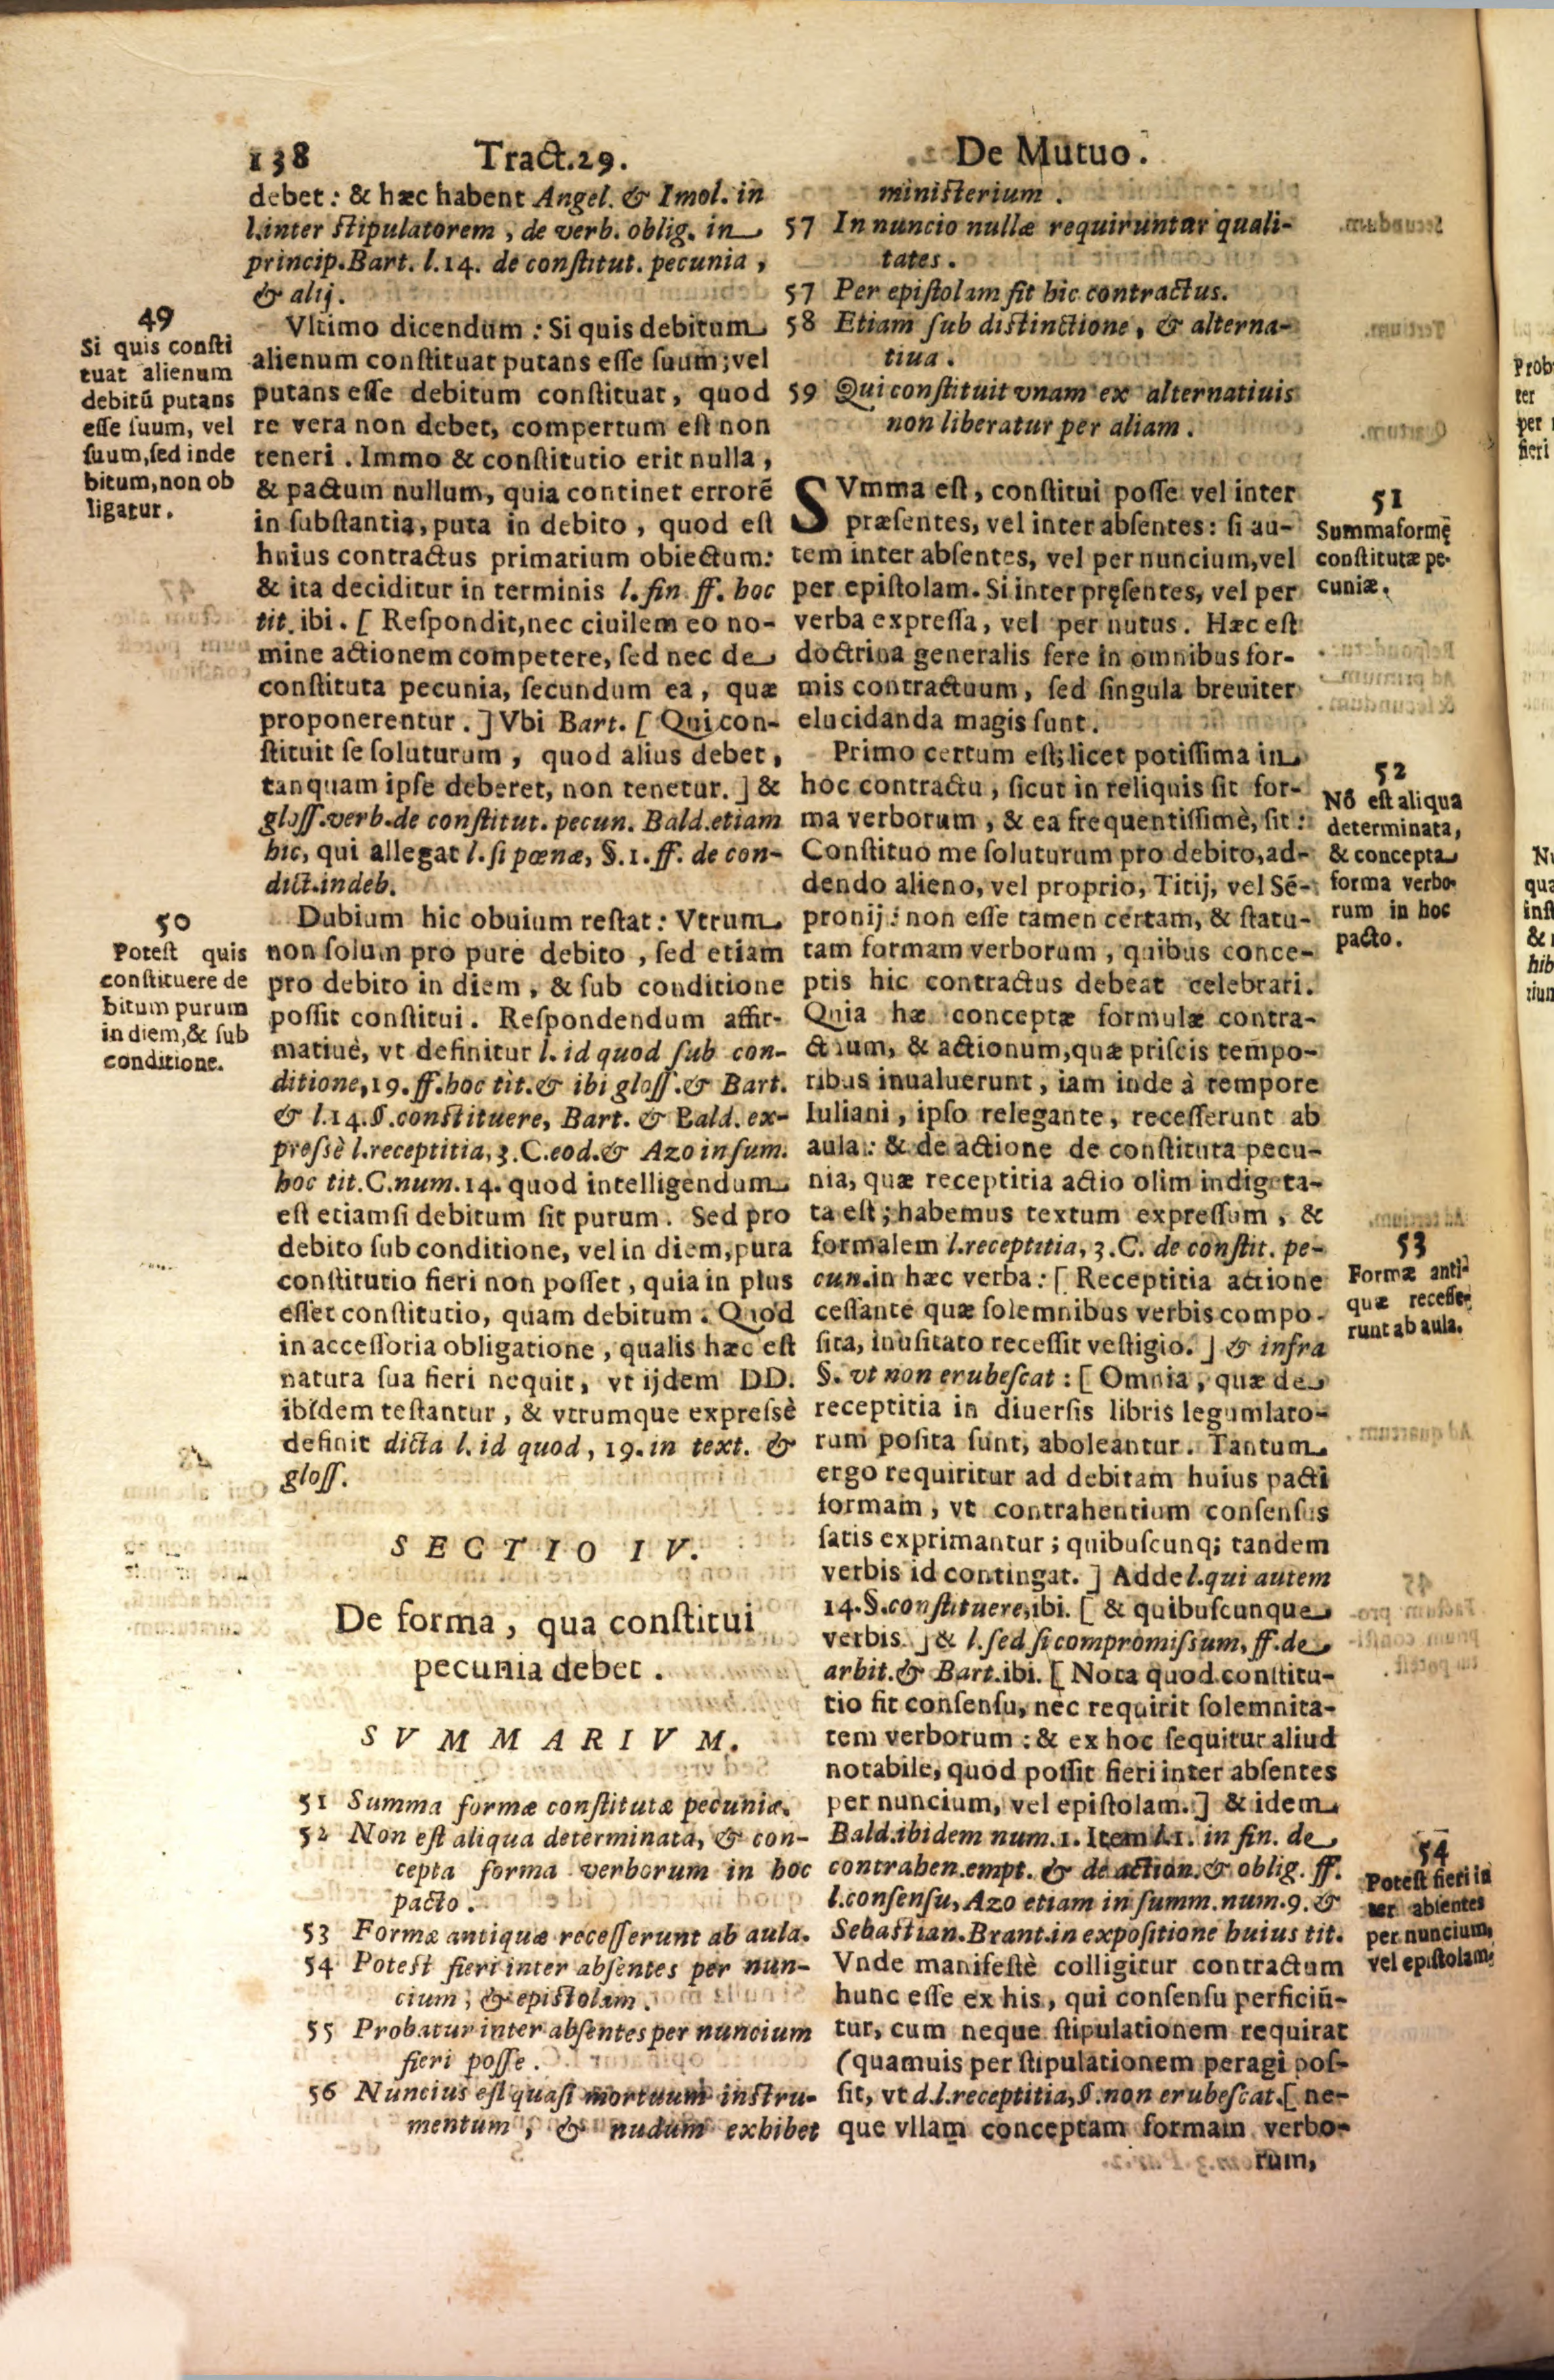 138 Tract.29. De Mutuo.
debet: & hæc habent Angel. & Imol. in
l.inter ſtipulatorem, de verb. oblig. in
princip.Bart. l.14. de conſtitut. pecunia,
& alij.
49
Si quis conſti
tuat alienum
debitũ putans
eſſe ſuum, vel
ſuum,ſed inde
bitum,non ob
ligatur.
Vltimo dicendum: Si quis debitum
alienum conſtituat putans eſſe ſuum; vel
putans eſſe debitum conſtituat, quod
re vera non debet, compertum eſt non
teneri. Immo & conſtitutio erit nulla,
& pactum nullum, quia continet errorẽ
in ſubſtantia, puta in debito, quod eſt
huius contractus primarium obiectum:
& ita deciditur in terminis l. fin ff. hoc
tit. ibi. [ Reſpondit,nec ciuilem eo no-
mine actionem competere, ſed nec de
conſtituta pecunia, ſecundum ea, quæ
proponerentur. ] Vbi Bart. [ Qui con-
ſtituit ſe ſoluturum, quod alius debet,
tanquam ipſe deberet, non tenetur. ] &
gloſſ.verb.de conſtitut. pecun. Bald.etiam
hic, qui allegat l. ſi pœnæ, §.1. ff. de con-
dict.indeb.
50
Poteſt quis
conſtituere de
bitum purum
in diem,& ſub
conditione.
Dubium hic obuium reſtat: Vtrum
non ſolum pro pure debito, ſed etiam
pro debito in diem, & ſub conditione
poſſit conſtitui. Reſpondendum affir-
matiuè, vt definitur l. id quod ſub con-
ditione,19.ff.hoc tit.& ibi gloſſ.& Bart.
& l.14.§.conſtituere, Bart. & Bald. ex-
preſsè l.receptitia,3.C.eod.& Azo in ſum.
hoc tit.C.num.14. quod intelligendum
eſt etiamſi debitum ſit purum. Sed pro
debito ſub conditione, vel in diem, pura
conſtitutio fieri non poſſet, quia in plus
eſſet conſtitutio, quam debitum. Quod
in acceſſoria obligatione, qualis hæc eſt
natura ſua fieri nequit, vt ijdem DD.
ibidem teſtantur, & vtrumque expreſsè
definit dicta l. id quod, 19. in text. &
gloſſ.
SECTIO IV.
De forma, qua conſtitui
pecunia debet.
SVMMARIVM.
51 Summa formæ conſtitutæ pecuniæ.
52 Non eſt aliqua determinata, & con-
cepta forma verborum in hoc
pacto.
53 Formæ antiquæ receſſerunt ab aula.
54 Poteſt fieri inter abſentes per nun-
cium, & epiſtolam.
55 Probatur inter abſentes per nuncium
fieri poſſe.
56 Nuncius eſt quaſi mortuum inſtru-
mentum, & nudum exhibet
miniſterium.
57 In nuncio nullæ requiruntur quali-
tates.
57 Per epiſtolam fit hic contractus.
58 Etiam ſub diſtinctione, & alterna-
tiua.
59 Qui conſtituit vnam ex alternatiuis
non liberatur per aliam.
SVmma eſt, conſtitui poſſe vel inter
præſentes, vel inter abſentes: ſi au-
tem inter abſentes, vel per nuncium,vel
per epiſtolam. Si inter pręſentes, vel per
verba expreſſa, vel per nutus. Hæc eſt
doctrina generalis fere in omnibus for-
mis contractuum, ſed ſingula breuiter
elucidanda magis ſunt.
51
Summa formę
conſtitutæ pe-
cuniæ.
Primo certum eſt; licet potiſſima in
hoc contractu, ſicut in reliquis ſit for-
ma verborum, & ea frequentiſſimè, ſit:
Conſtituo me ſoluturum pro debito, ad-
dendo alieno, vel proprio, Titij, vel Sẽ-
pronij: non eſſe tamen certam, & ſtatu-
tam formam verborum, quibus conce-
ptis hic contractus debeat celebrari.
Quia hæ conceptæ formulæ contra-
ctuum, & actionum,quæ priſcis tempo-
ribus inualuerunt, iam inde à tempore
Iuliani, ipſo relegante, receſſerunt ab
aula: & de actione de conſtituta pecu-
nia, quæ receptitia actio olim indigeta-
ta eſt; habemus textum expreſſum, &
formalem l.receptitia,3.C. de conſtit. pe-
cun.in hæc verba: [ Receptitia actione
ceſſante quæ ſolemnibus verbis compo-
ſita, inuſitato receſſit veſtigio. ] & infra
§. vt non erubeſcat: [ Omnia, quæ de
receptitia in diuerſis libris legumlato-
rum poſita ſunt, aboleantur. Tantum
ergo requiritur ad debitam huius pacti
formam, vt contrahentium conſenſus
ſatis exprimantur; quibuſcunq; tandem
verbis id contingat. ] Adde l.qui autem
14.§.conſtituere,ibi. [ & quibuſcunque
verbis. ] & l.ſed ſi compromiſsum, ff.de
arbit.& Bart.ibi. [ Nota quod conſtitu-
tio fit conſenſu, nec requirit ſolemnita-
tem verborum: & ex hoc ſequitur aliud
notabile, quod poſſit fieri inter abſentes
per nuncium, vel epiſtolam. ] & idem
Bald.ibidem num.1. Item l.1. in fin. de
contrahen.empt. & de action.& oblig. ff.
l.conſenſu, Azo etiam in ſumm.num.9. &
Sebaſtian.Brant.in expoſitione huius tit.
Vnde manifeſtè colligitur contractum
hunc eſſe ex his, qui conſenſu perficiũ-
tur, cum neque ſtipulationem requirat
(quamuis per ſtipulationem peragi poſ-
ſit, vt d.l.receptitia,§.non erubeſcat.[ ne-
que vllam conceptam formam verbo-
rum,
52
Nõ eſt aliqua
determinata,
& concepta
forma verbo-
rum in hoc
pacto.
53
Formæ anti-
quæ receſſe-
runt ab aula.
54
Poteſt fieri in
ter abſentes
per nuncium,
vel epiſtolam.
Prob
ter
per
fieri